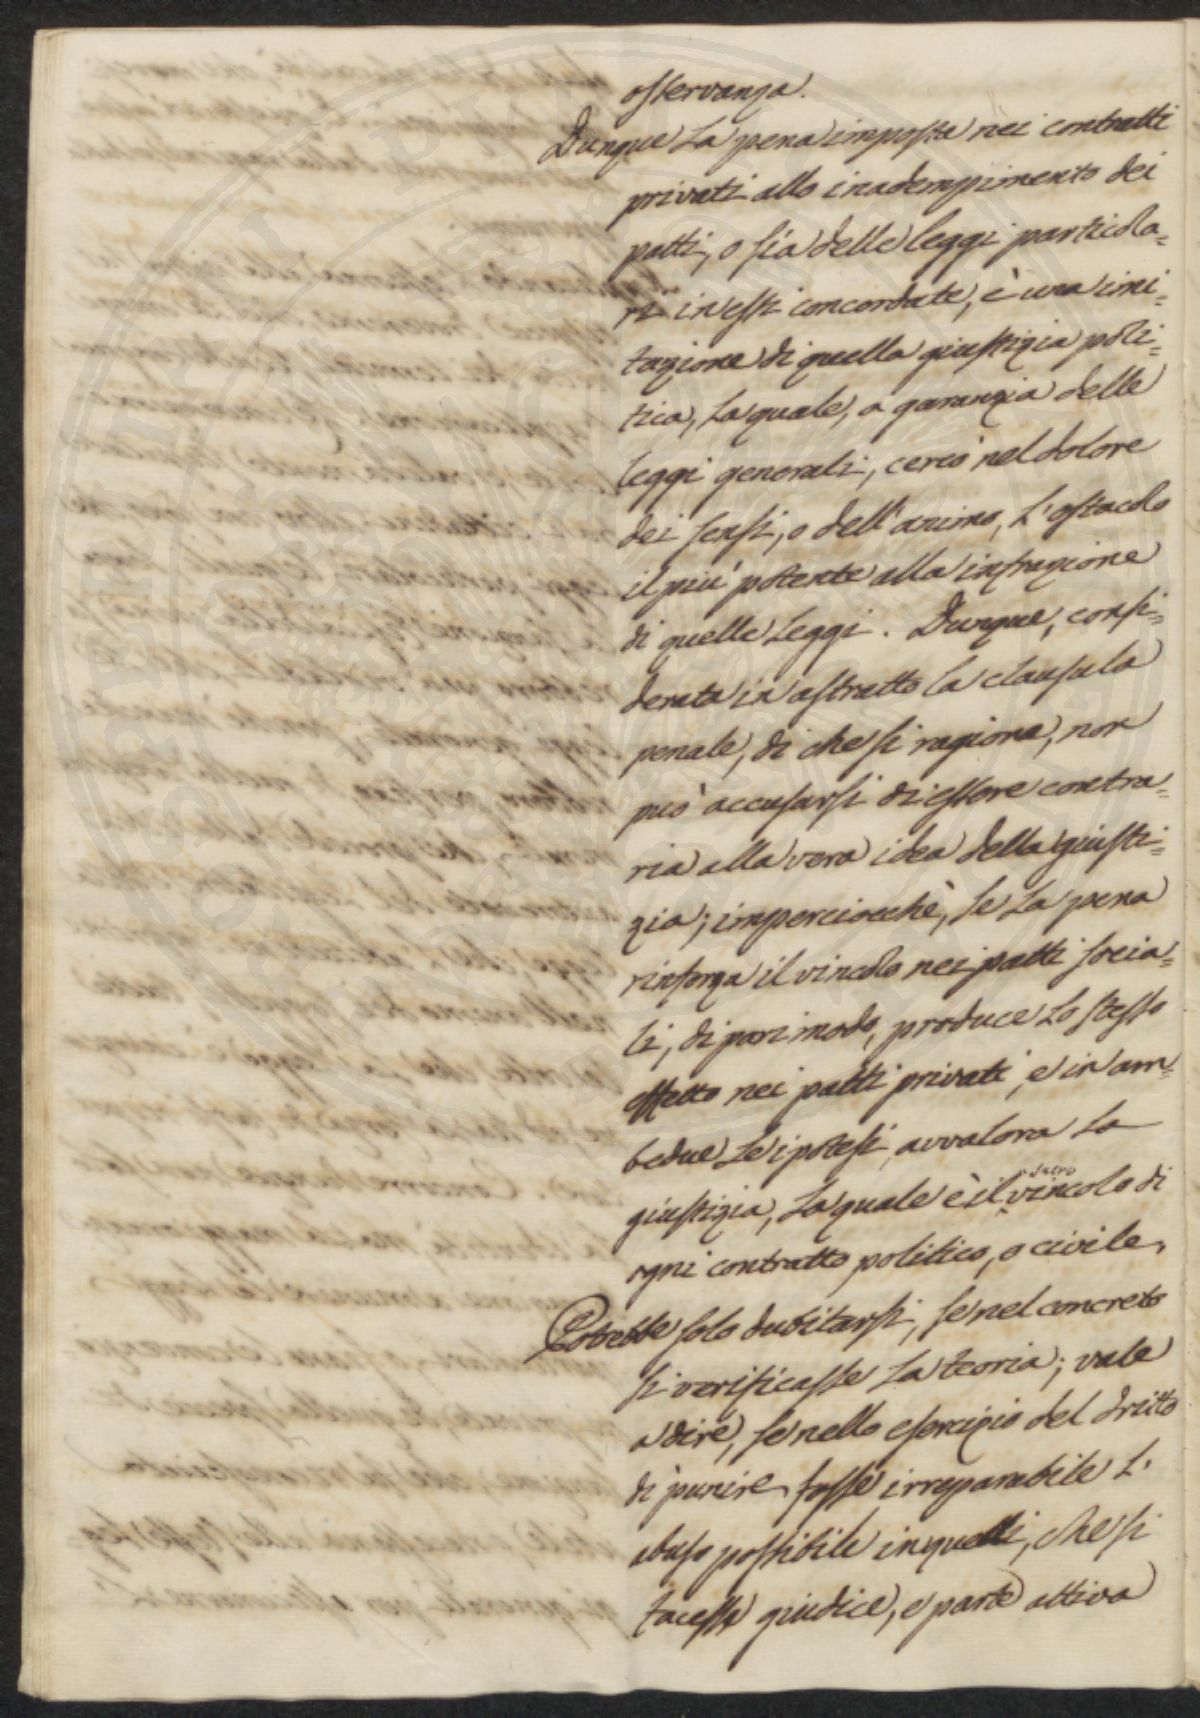 osservanza.
Dunque la pena imposta nei contratti
privati allo inadempimento dei
patti, o sia delle leggi particola=
ri in essi concordate, è una imi=
tazione di quella giustizia poli=
tica, la quale, a garanzia delle
leggi generali, cercò nel dolore
dei sensi, o dell'animo, l'ostacolo
il più potente alla infrazione
di quelle leggi. Dunque, consi=
derata in astratto la clausula
penale, di che si ragiona, non
può accusarsi di essere contra=
ria alla vera idea della giusti=
zia; imperciocchè, se la pena
rinforza il vincolo nei patti socia=
li, di pari modo, produce lo stesso
effetto nei patti privati, e in am=
bedue le ipotesi avvalora la
giustizia, la quale è il sacro vincolo di
ogni contratto politico, o civile.
Potrebbe solo dubitarsi, se nel concreto
si verificasse la teoria; vale
a dire, se nello esercizio del dritto
di punire fosse irreparabile l'
abuso possibile in quelli, che si
facesse giudice, e parte attiva